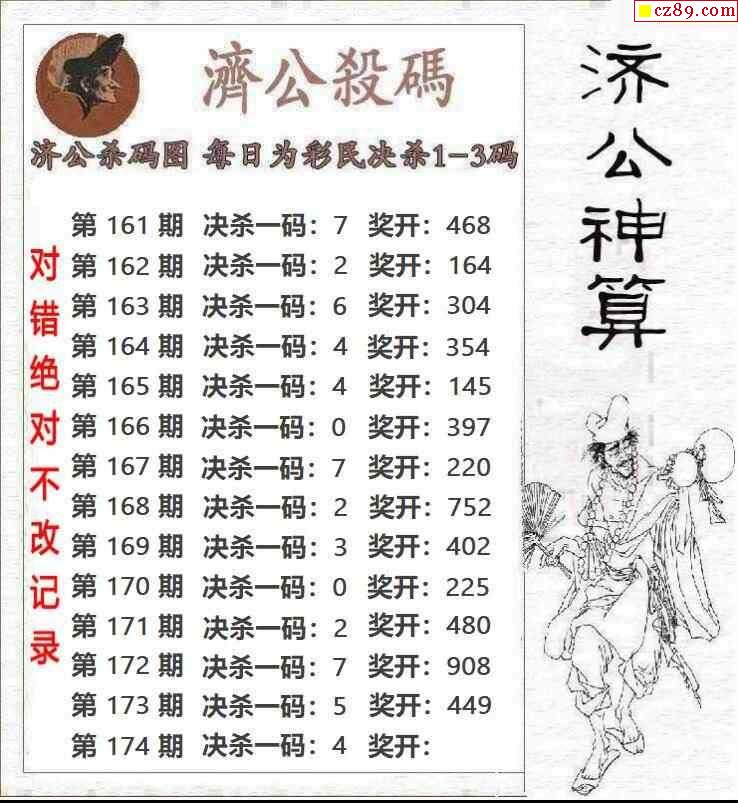 cz89.com
濟公殺碼
济公杀码图 每日为彩民决杀1-3码
第 161 期 决杀一码：7 奖开：468
第 162 期 决杀一码：2 奖开：164
第 163 期 决杀一码：6 奖开：304
第 164 期 决杀一码：4 奖开：354
第 165 期 决杀一码：4 奖开：145
第 166 期 决杀一码：0 奖开：397
第 167 期 决杀一码：7 奖开：220
第 168 期 决杀一码：2 奖开：752
第 169 期 决杀一码：3 奖开：402
第 170 期 决杀一码：0 奖开：225
第 171 期 决杀一码：2 奖开：480
第 172 期 决杀一码：7 奖开：908
第 173 期 决杀一码：5 奖开：449
第 174 期 决杀一码：4 奖开：
对错绝对不改记录
济公神算